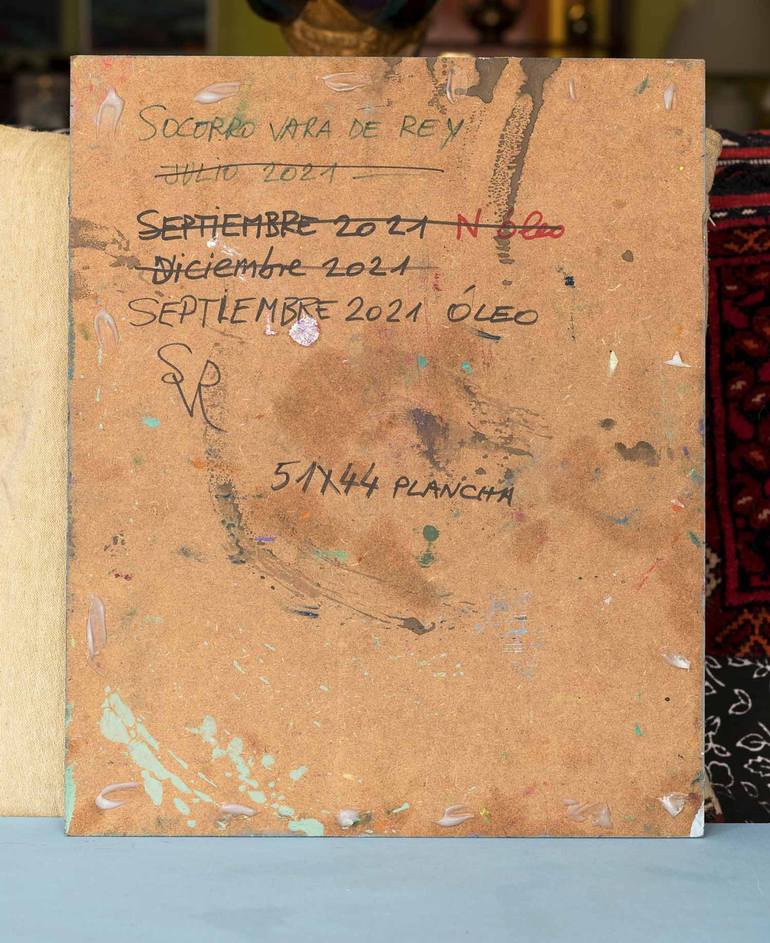 SOCORRO VARA DE REY
JULIO 2021
SEPTIEMBRE 2021 N óleo
Diciembre 2021
SEPTIEMBRE 2021 ÓLEO
SVR
51X44 PLANCHA